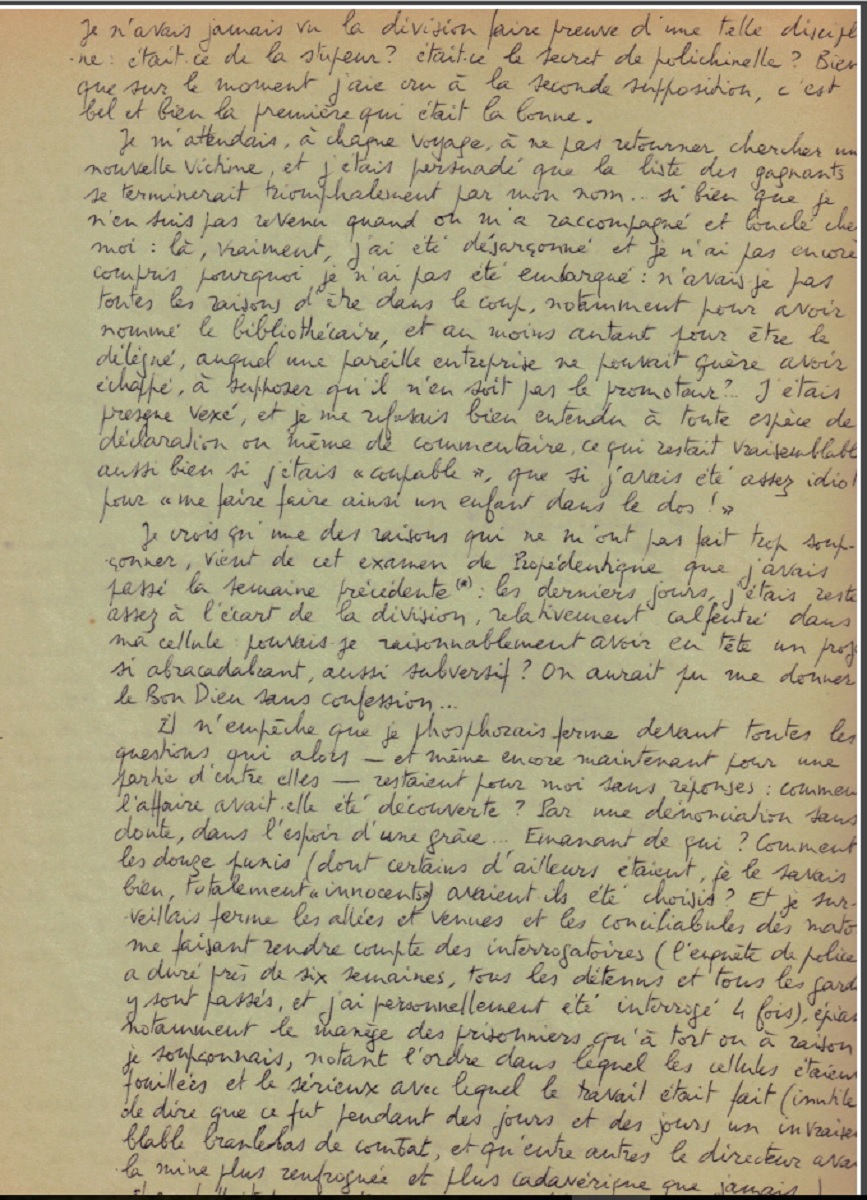 Je n'avais jamais vu la division faire preuve d'une telle discipl
ne : était-ce de la stupeur ? était-ce le secret de polichinelle ? Bien
que sur le moment j'aie cru à la seconde supposition, c'est
bel et bien la première qui était la bonne.
Je m'attendais, à chaque voyage, à ne pas retourner chercher un
nouvelle victime, et j'étais persuadé que la liste des gagnants
se terminerait triomphalement par mon nom... si bien que je
n'en suis pas revenu quand on m'a raccompagné et bouclé che
moi : là, vraiment, j'ai été désarçonné et je n'ai pas encore
compris pourquoi je n'ai pas été embarqué : n'avais-je pas
toutes les raisons d'être dans le coup, notamment pour avoir
nommé le bibliothécaire, et au moins autant pour être le
délégué, auquel une pareille entreprise ne pouvait guère avoir
échappé, à supposer qu'il n'en soit pas le promoteur ?.. J'étais
presque vexé, et je me refusais bien entendu à toute espèce de
déclaration ou même de commentaire, ce qui restait vraisemblabl
aussi bien si j'étais « coupable », que si j'avais été assez idiot
pour « me faire faire ainsi un enfant dans le dos ! »
Je crois qu'une des raisons qui ne m'ont pas fait trop soup-
çonner, vient de cet examen de Propédeutique que j'avais
passé la semaine précédente (*) : les derniers jours, j'étais resté
assez à l'écart de la division, relativement calfeutré dans
ma cellule : pouvais-je raisonnablement avoir en tête un proj
si abracadabrant, aussi subversif ? On aurait pu me donner
le Bon Dieu sans confession...
Il n'empêche que je phosphorais ferme devant toutes les
questions qui alors — et même encore maintenant pour une
partie d'entre elles — restaient pour moi sans réponses : commen
l'affaire avait-elle été découverte ? Par une dénonciation sans
doute, dans l'espoir d'une grâce... Emanant de qui ? Comment
les douze punis (dont certains d'ailleurs étaient, je le savais
bien, totalement « innocents ») avaient-ils été choisis ? Et je sur-
veillais ferme les allées et venues et les conciliabules des mato
me faisant rendre compte des interrogatoires (l'enquête de police
a duré près de six semaines, tous les détenus et tous les gard
y sont passés, et j'ai personnellement été interrogé 4 fois), épian
notamment le manège des prisonniers qu'à tort ou à raison
je soupçonnais, notant l'ordre dans lequel les cellules étaien
fouillées et le sérieux avec lequel le travail était fait (inutile
de dire que ce fut pendant des jours et des jours un invraise
blable branlebas de combat, et qu'entre autres le directeur avai
la mine plus renfrognée et plus cadavérique que jamais !